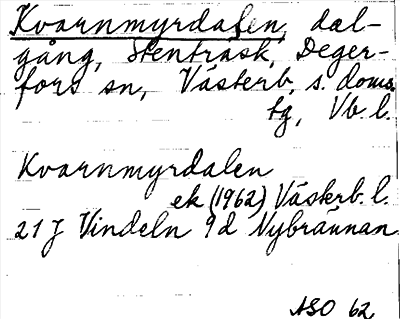 Kvarnmyrdalen, dal-
gång, Stenträsk, Deger-
fors sn, Västerb. s. doms.
tg, Vb l.
Kvarnmyrdalen
ek (1962) Västerb. l.
21 J Vindeln 9d Nybrännan
ASO 62